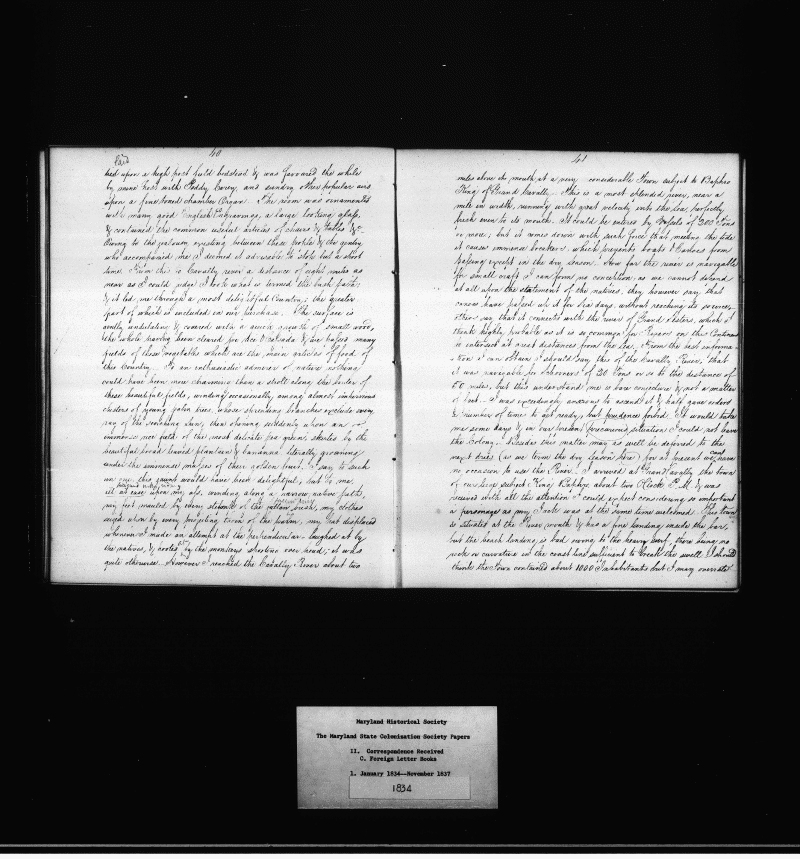 40
laid
bed upon a high post field bedstead & was favoured the while
by mine host with Paddy Carey, and sundry other popular airs
upon a fine toned chamber Organ. The room was ornamented
with many good English Engravings, a large looking glass,
& contained the common useful articles of chairs & tables &c.
Owing to the jealousy existing between these people & the gentry
who accompanied me I deemed it advisable to stop but a short
time. From this is Cavally river a distance of eight miles as
near as I could judge I took what is termed the bush path;
& it led me through a most delightful Country; the greater
part of which is included in our purchase. The surface is
gently undulating & covered with a growth of small wood,
the whole having been cleared for Rice & Cassada & we passed many
fields of these vegetables which are the main articles of food of
this Country. To an enthusiastic admirer of nature nothing
could have been more charming than a stroll along the border of
these beautiful fields, winding occasionally among almost impervious
clusters of young palm trees, whose spreading branches exclude every
ray of the scorching sun, then opening suddenly upon an
immense rice field of the most delicate pea green, skirted by the
beautiful broad leaved plantain & bananna literally groaning
under the immense masses of their golden fruit. I say to such
an one, this jaunt would have been delightful, but to me,
ill at ease upon my ass, winding along a narrow native path,
my feet mauled by every stump of the bush, my clothes
seized upon by every projecting thorn of the , my hat displaced
whenever I made an attempt at the perpendicular laughed at by
the natives, & hooted at by the monkeys sporting over head, it was
quite otherwise. However I reached the Cavally River about two
41
miles above its mouth at a very considerable Town subject to Baphro
King of Grand Cavally. This is a most splendid river, near a
mile in width, running with great velocity into the sea, perfectly
fresh even to its mouth. It could be entered by Vessels of 300 Tons
or more; but it comes down with such force that meeting the tide
it causes immense breakers which prevents boats & canoes from
passing except in the dry season. How far the river is navigable
for small craft I can form no conception, as we cannot depend
at all upon the statement of the natives, they however say that
canoes have passed up it for six days, without reaching its source,
others say that it connects with the river of Grand Sesters, which I
think highly probable as it is so common for Rivers on this Continent
to intersect at vast distances from the sea. From the best informa-
tion I can obtain I should say this of the Cavally River, that
it was navigable for Schooners of 20 Tons or so to the distance of
50 miles, but this understand me is bare conjecture & not a matter
of fact. I was exceedingly anxious to ascend it & had gone ordered
a number of times to get ready, but prudence forbid. It would take
me some days & in our present precarious situation I could not leave
the Colony. Besides this matter may as well be deferred to the
next dries (as we term the dry season here) for at present we can have
no occasion to use the River. I arrived at Grand Cavally the town
of our liege subject King Baphro about two Oclock P.M. & was
received with all the attention I could expect considering so important
a personage as my Jack was at the same time welcomed. This town
is situated at the River mouth & has a fine landing inside the bar,
but the beach landing is bad owing to the heavy surf, there being no
rock or curvature in the coast line sufficient to break the swell. I should
think the Town contained about 1000 Inhabitants but I may overrate
Maryland Historical Society
The Maryland State Colonization Society Papers
II. Correspondence Received
C. Foreign Letter Books
1. January 1834--November 1837
1834